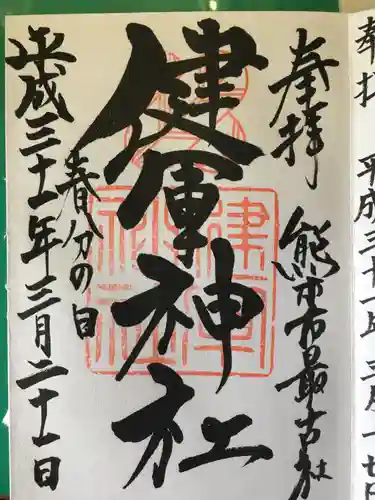 奉拝
熊本市最古社
健軍神社
春分の日
平成三十一年三月二十一日
奉拝
平成三十一年三月十七日